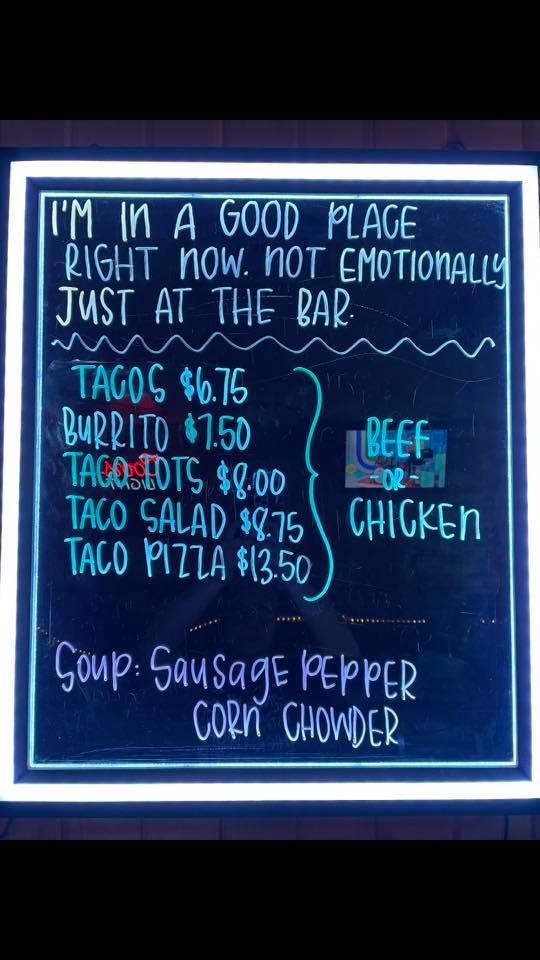 I'M IN A GOOD PLACE
RIGHT NOW. NOT EMOTIONALLY
JUST AT THE BAR.
TACOS $6.75
BURRITO $7.50
TACO TOTS $8.00
TACO SALAD $8.75
TACO PIZZA $13.50
BEEF
-OR-
CHICKEN
Soup: Sausage PEPPER
CORN CHOWDER